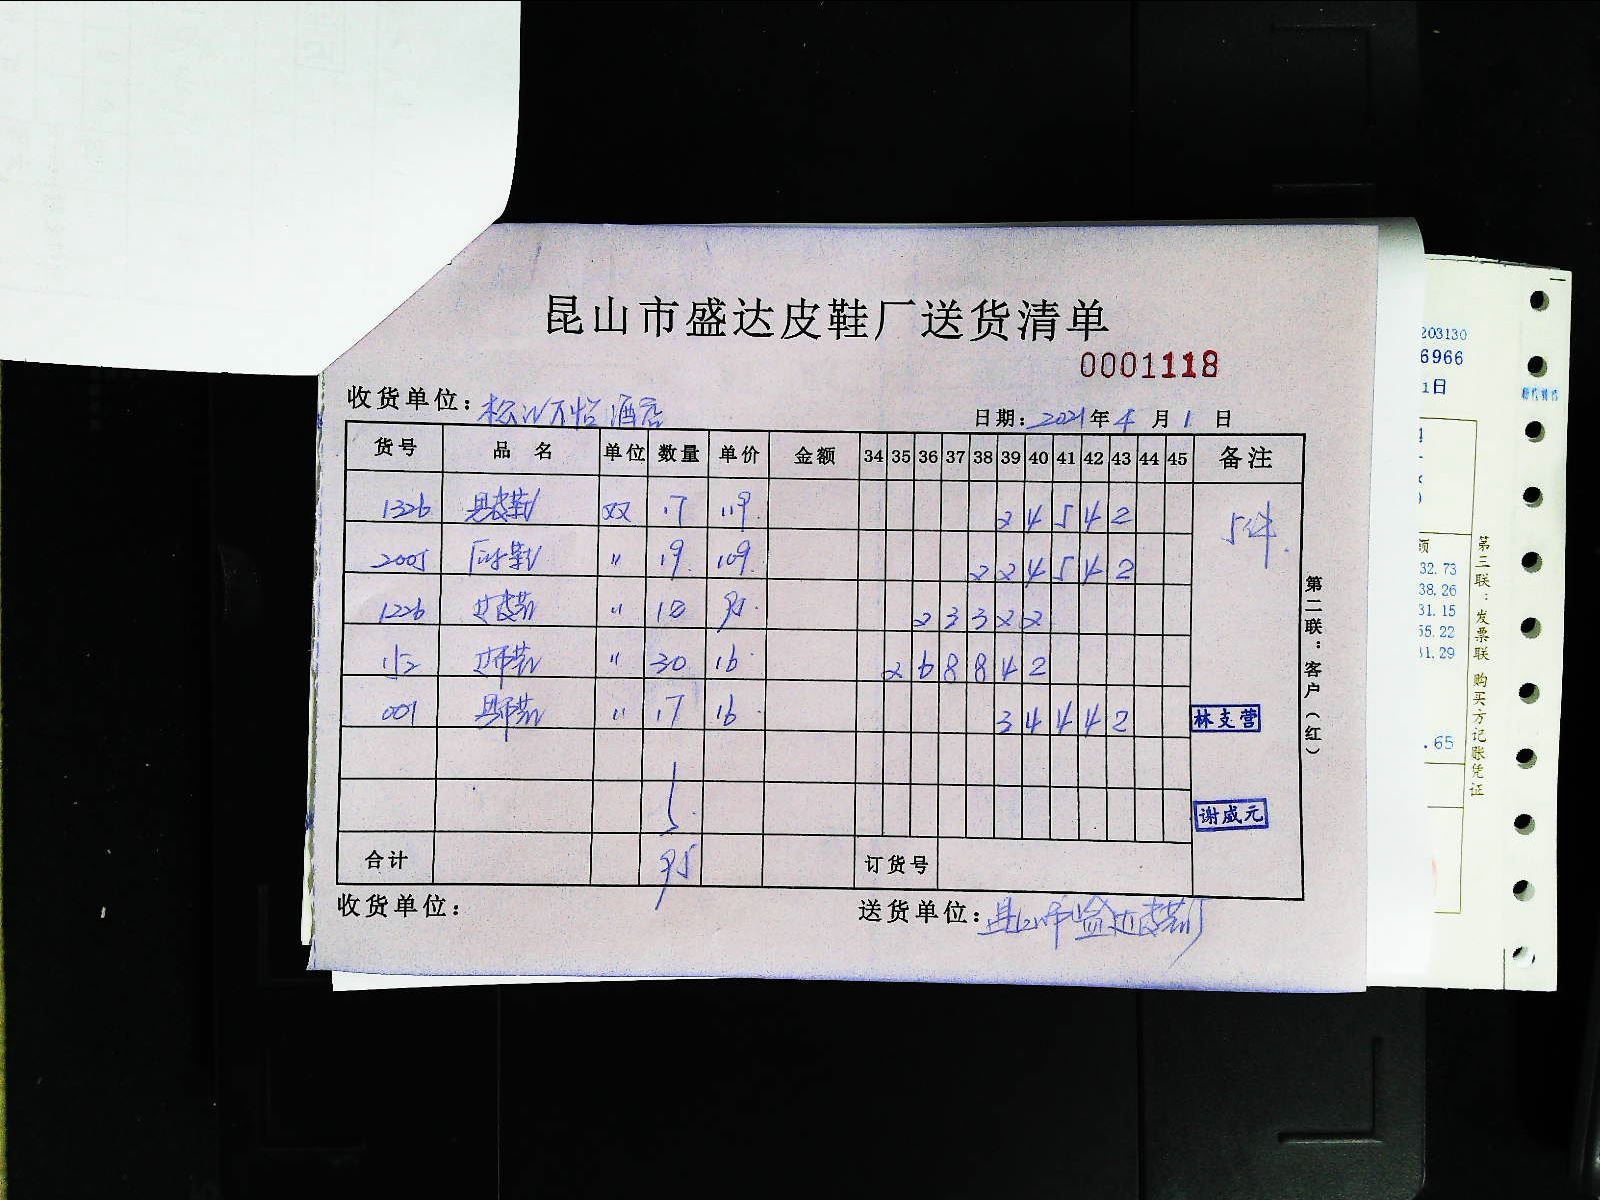 昆山市盛达皮鞋厂送货清单
0001118
收货单位: 酒店
日期: 2021年4月1日
货号 品名 单位 数量 单价 金额 34 35 36 37 38 39 40 41 42 43 44 45 备注
1326 男皮鞋 双 17 119 2 4 5 4 2 5件
2005 " 19 109 2 2 4 5 4 2
1226 女皮鞋 " 12 95 2 3 3 2 2
112 " 30 16 2 6 8 8 4 2
001 " 17 16 3 4 4 4 2
林支营
谢威元
合计 95 订货号
收货单位:
送货单位: 昆山市盛达皮鞋厂
第二联:客户(红)
203130
6966
1日
32.73
38.26
31.15
55.22
31.29
.65
第三联:发票联 购买方记账凭证